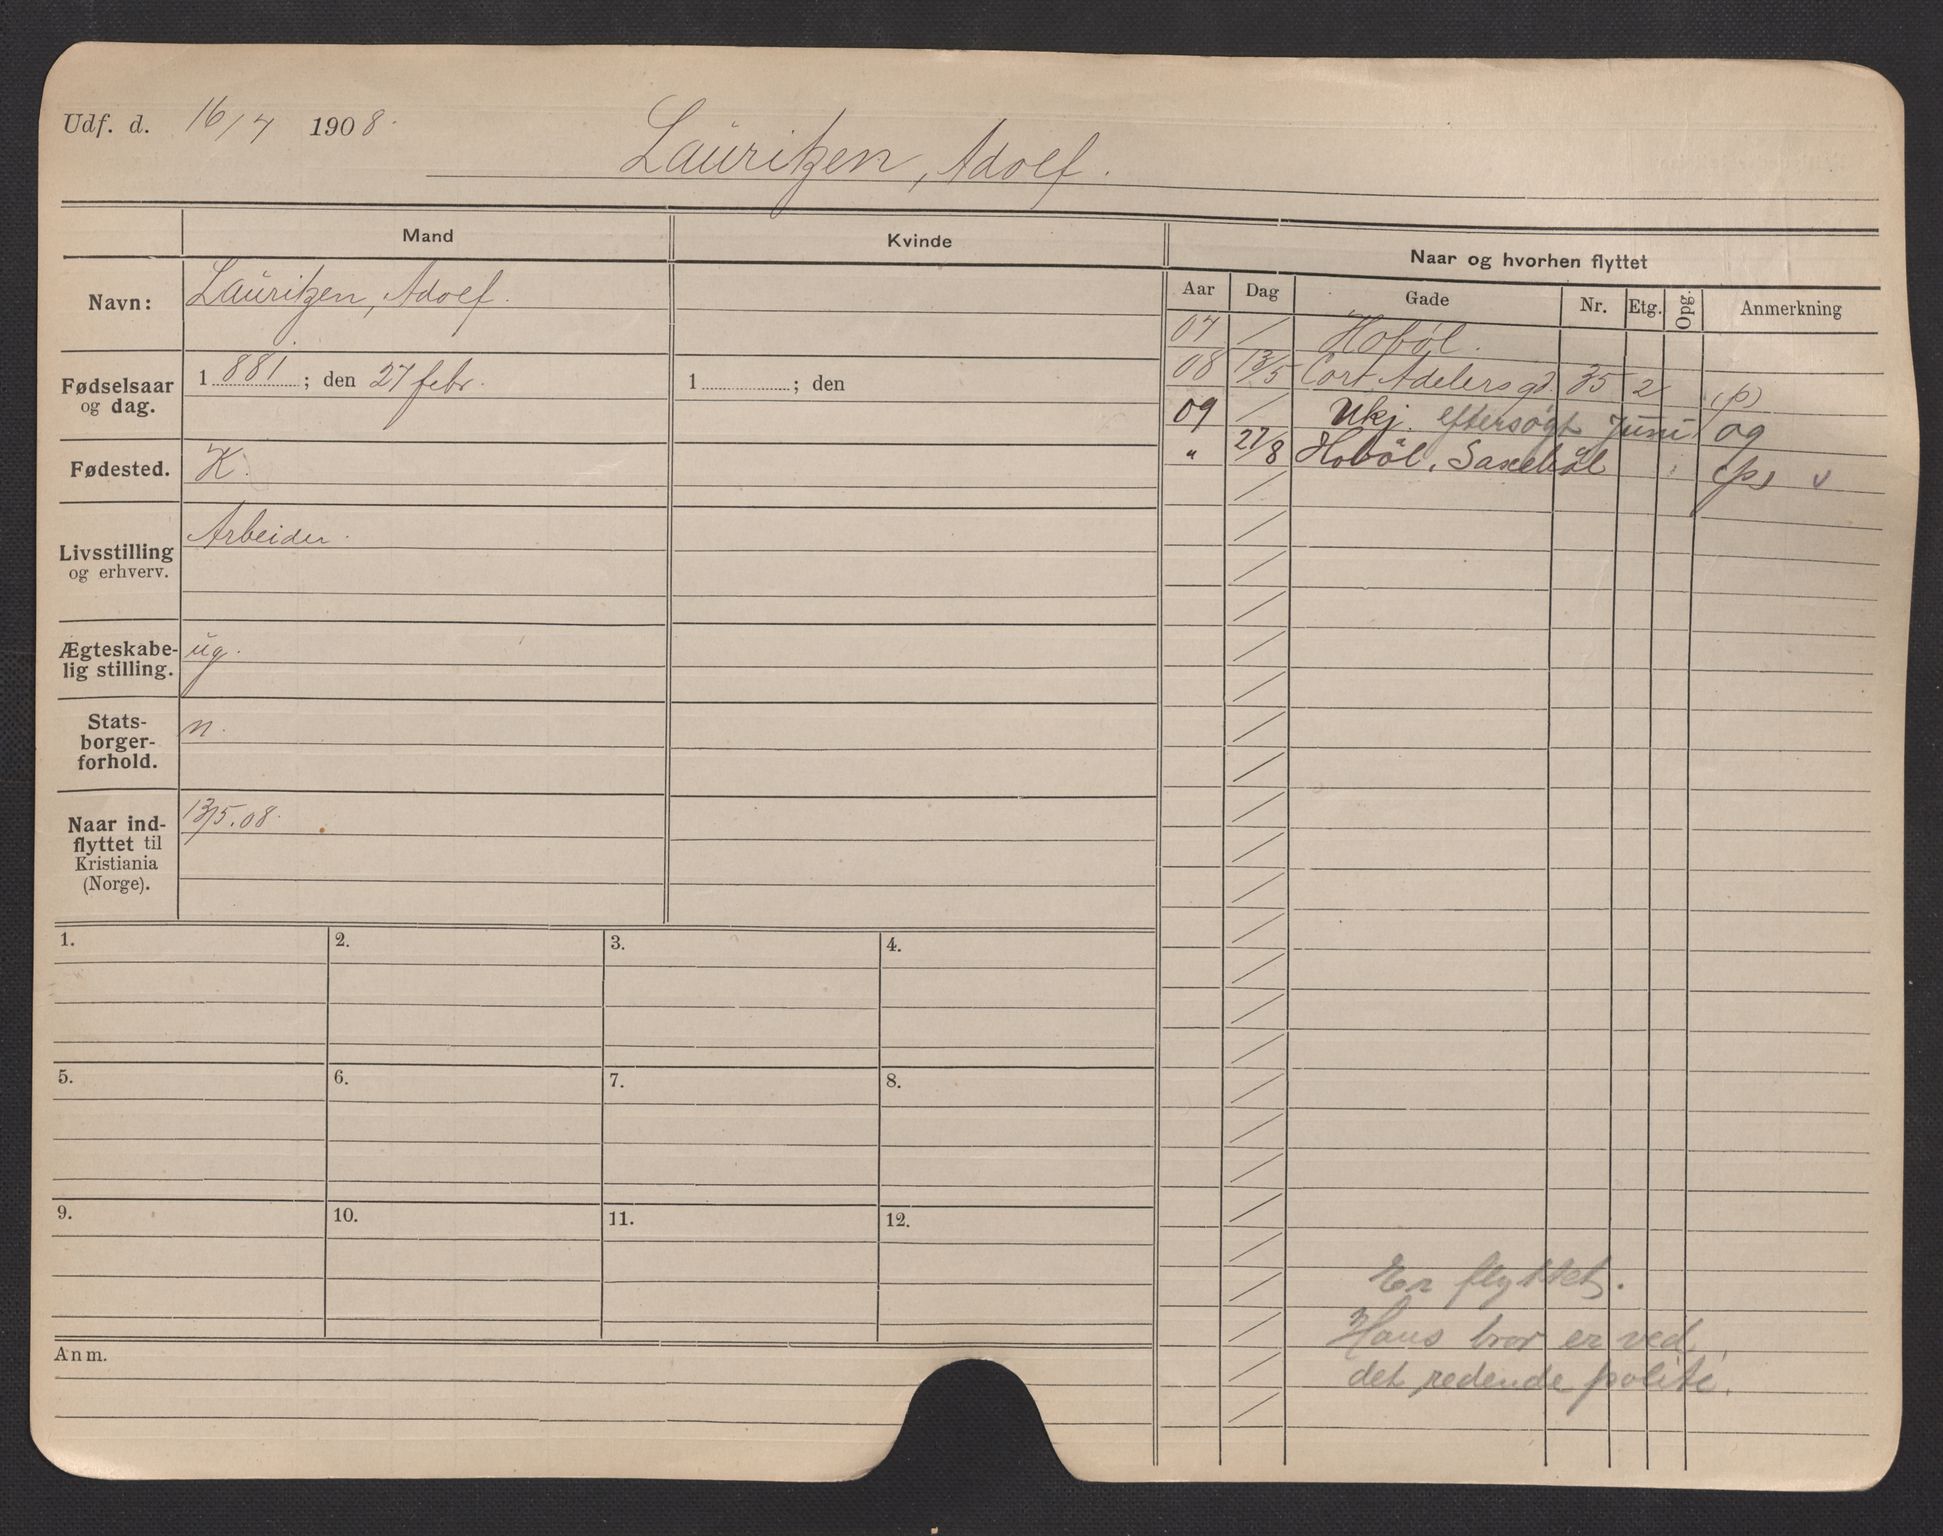 Udf. d. 16/7 1908.
Lauritzen, Adolf.
Mand
Kvinde
Naar og hvorhen flyttet
Navn: Lauritzen, Adolf.
Aar Dag Gade Nr. Etg. Opg. Anmerkning
07 / Hoböl.
Fødselsaar og dag. 1881; den 27 febr. 1 ; den
08 13/5 Cort Adelersgd. 35 2 (p)
09 / Ukj. eftersøgt Juni og
Fødested. K.
" 27/8 Hoböl, Saxebøl (ps) v
Livsstilling og erhverv. Arbeider.
Ægteskabe-
lig stilling. ug.
Stats-
borger-
forhold. n.
Naar ind-
flyttet til
Kristiania
(Norge). 13/5.08.
1. 2. 3. 4.
5. 6. 7. 8.
9. 10. 11. 12.
Er flyttet.
Hans bror er ved
det redende politi.
Anm.